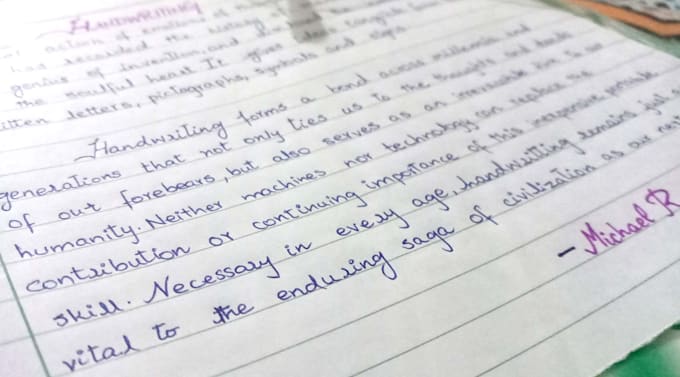 HANDWRITING
action of emotions of
has recorded the history of
genius of invention, and
the soulful heart. It gives tangible form
itten letters, pictographs, symbols and signs
Handwriting forms a bond across millennia and
generations that not only ties us to the thoughts and deeds
of out forebears, but also serves as an irrevocable link to our
humanity. Neither machines nor technology can replace the
contribution or continuing importance of this inexpensive portable
skill. Necessary in every age, handwriting remains just as
vital to the enduring saga of civilization as our next
- Michael R